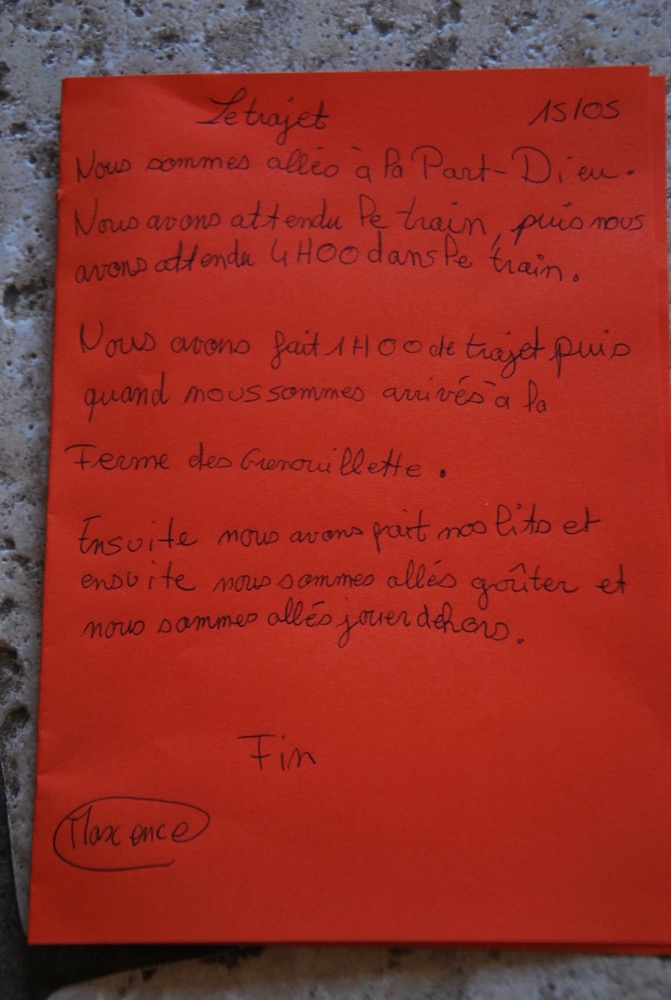 Le trajet 15/05
Nous sommes allés à la Part-Dieu.
Nous avons attendu le train, puis nous
avons attendu 4H00 dans le train.
Nous avons fait 1H00 de trajet puis
quand nous sommes arrivés à la
Ferme des Grenouillette.
Ensuite nous avons fait nos lits et
ensuite nous sommes allés goûter et
nous sommes allés jouer dehors.
Fin
Maxence